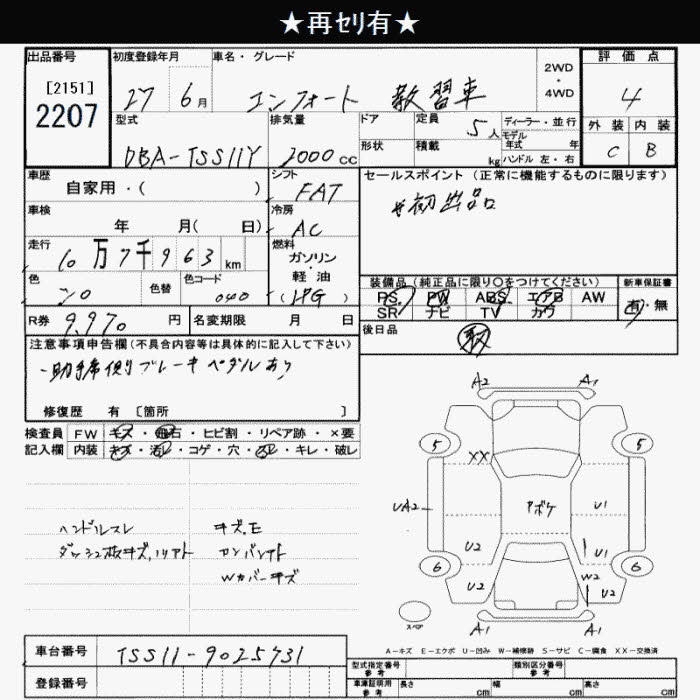 ★再ｾﾘ有★
出品番号 初度登録年月 車名・グレード 2WD・4WD 評価点
[2151]
2207
27 6月 コンフォート 教習車 4
型式 排気量 ドア 定員 5人 ディーラー・並行 外装 内装
モデル年式 年
DBA-TSS11Y 2000cc 形状 積載 kg ハンドル 左・右 C B
車歴 シフト セールスポイント(正常に機能するものに限ります)
自家用・( ) FAT
初出品
車検 冷房
年 月( 日) AC
走行 燃料
10万7千963km ガソリン・軽油
(LPG)
色 色替 色コード 装備品(純正品に限り○をつけてください) 新車保証書
シロ 040 PS PW ABS エアB AW 有・無
SR ナビ TV カワ
R券 9,970円 名変期限 月 日 後日品
取
注意事項申告欄(不具合内容等は具体的に記入して下さい)
助手席側ブレーキペダルあり
修復歴 有 [箇所 ]
検査員 FW キズ・飛石・ヒビ割・リペア跡・×要
記入欄 内装 キズ・汚レ・コゲ・穴・スレ・キレ・破レ
A2 A1
5 5
XX
UA2 アボケ U1
U2 U1
6 6
U2 W2 U2
スペア
A1 A1
ハンドルスレ キズ.E
ダッシュ板キズ,リアト カンバンアト
Wカバーキズ
A－キズ E－エクボ U－凹み W－補修跡 S－サビ C－腐食 XX－交換済
車台番号 TSS11-9025731
型式指定番号 参考 類別区分番号 参考
登録番号
車庫証明用 参考 長さ cm 幅 cm 高さ cm